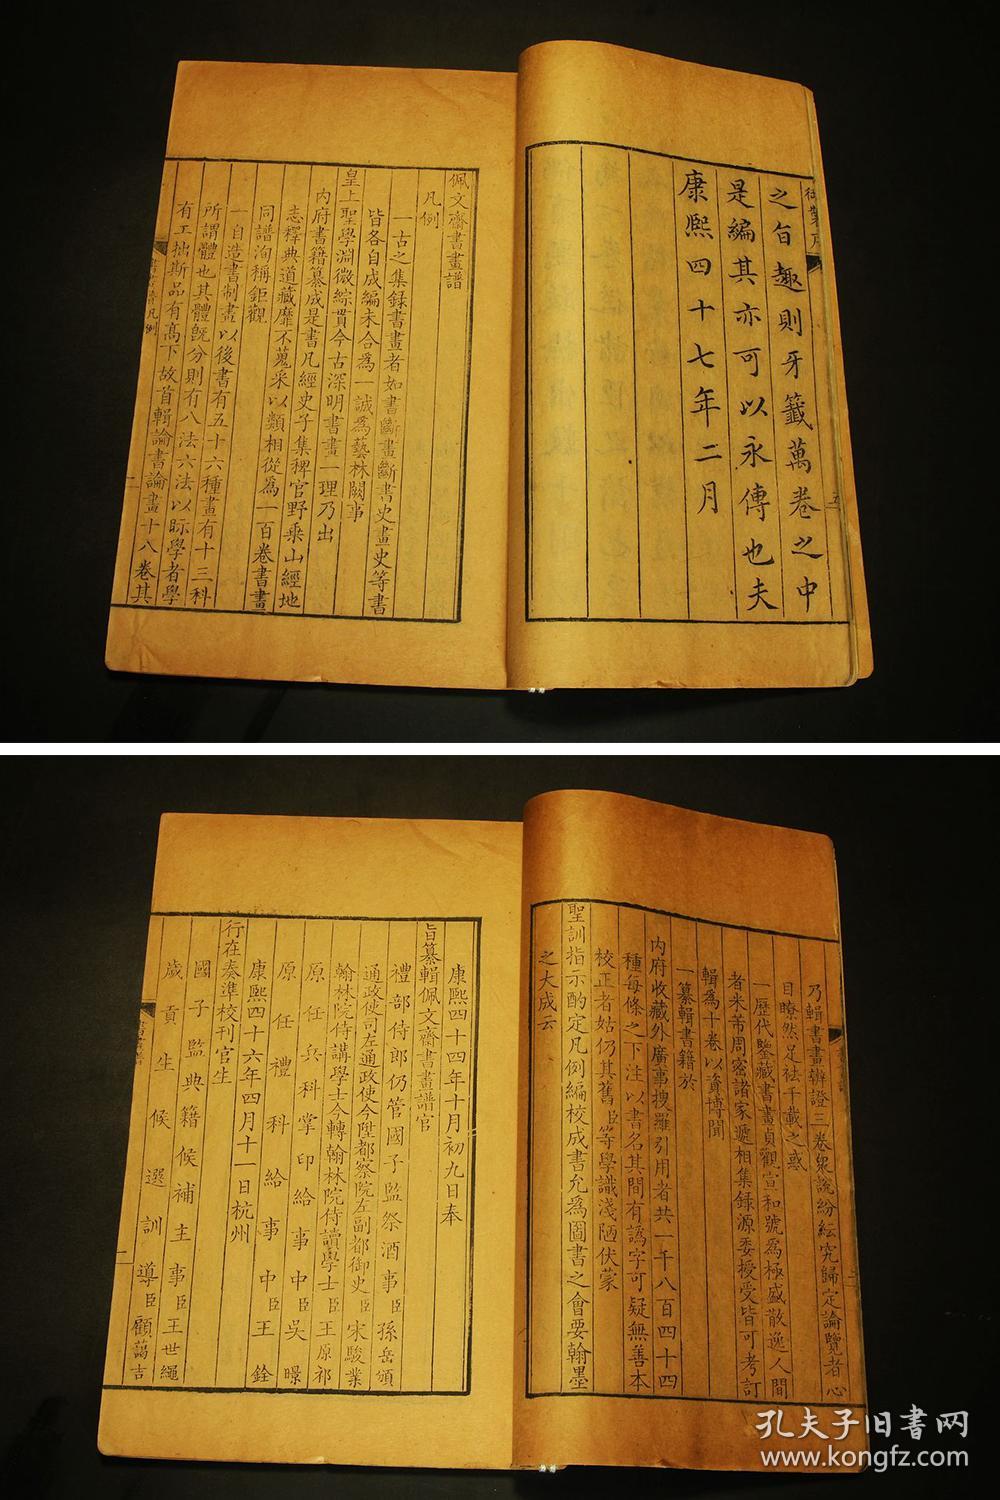 御製序
之旨趣則牙籤萬卷之中
是編其亦可以永傳也夫
康熙四十七年二月
佩文齋書畫譜
凡例
一古之集錄書畫者如書斷畫斷書史畫史等書
皆各自成編未合為一誠為藝林闕事
皇上聖學淵微綜貫今古深明書畫一理乃出
內府書籍纂成是書凡經史子集稗官野乘山經地
志釋典道藏靡不蒐采以類相從為一百卷書畫
同譜洵稱鉅觀
一自造書制畫以後書有五十六種畫有十三科
所謂體也其體旣分則有八法六法以眎學者學
有工拙斯品有高下故首輯論書論畫十八卷其
書畫譜凡例
乃輯書畫辨證三卷衆說紛紜究歸定論覽者心
目瞭然足祛千載之惑
一歷代鑒藏書畫貞觀宣和號為極盛散逸人間
者米芾周密諸家遞相集錄源委授受皆可考訂
輯為十卷以資博聞
一纂輯書籍於
內府收藏外廣事搜羅引用者共一千八百四十四
種每條之下注以書名其間有譌字可疑無善本
校正者姑仍其舊臣等學識淺陋伏蒙
聖訓指示酌定凡例編校成書允為圖書之會要翰墨
之大成云
康熙四十四年十月初九日奉
旨纂輯佩文齋書畫譜官
禮部侍郎仍管國子監祭酒事臣孫岳頒
通政使司左通政使今陞都察院左副都御史臣宋駿業
翰林院侍講學士今轉翰林院侍讀學士臣王原祁
原任兵科掌印給事中臣吳暻
原任禮科給事中臣王銓
康熙四十六年四月十一日杭州
行在奏準校刊官生
國子監典籍候補主事臣王世繩
歲貢生候選訓導臣顧藹吉
孔夫子旧書网
www.kongfz.com